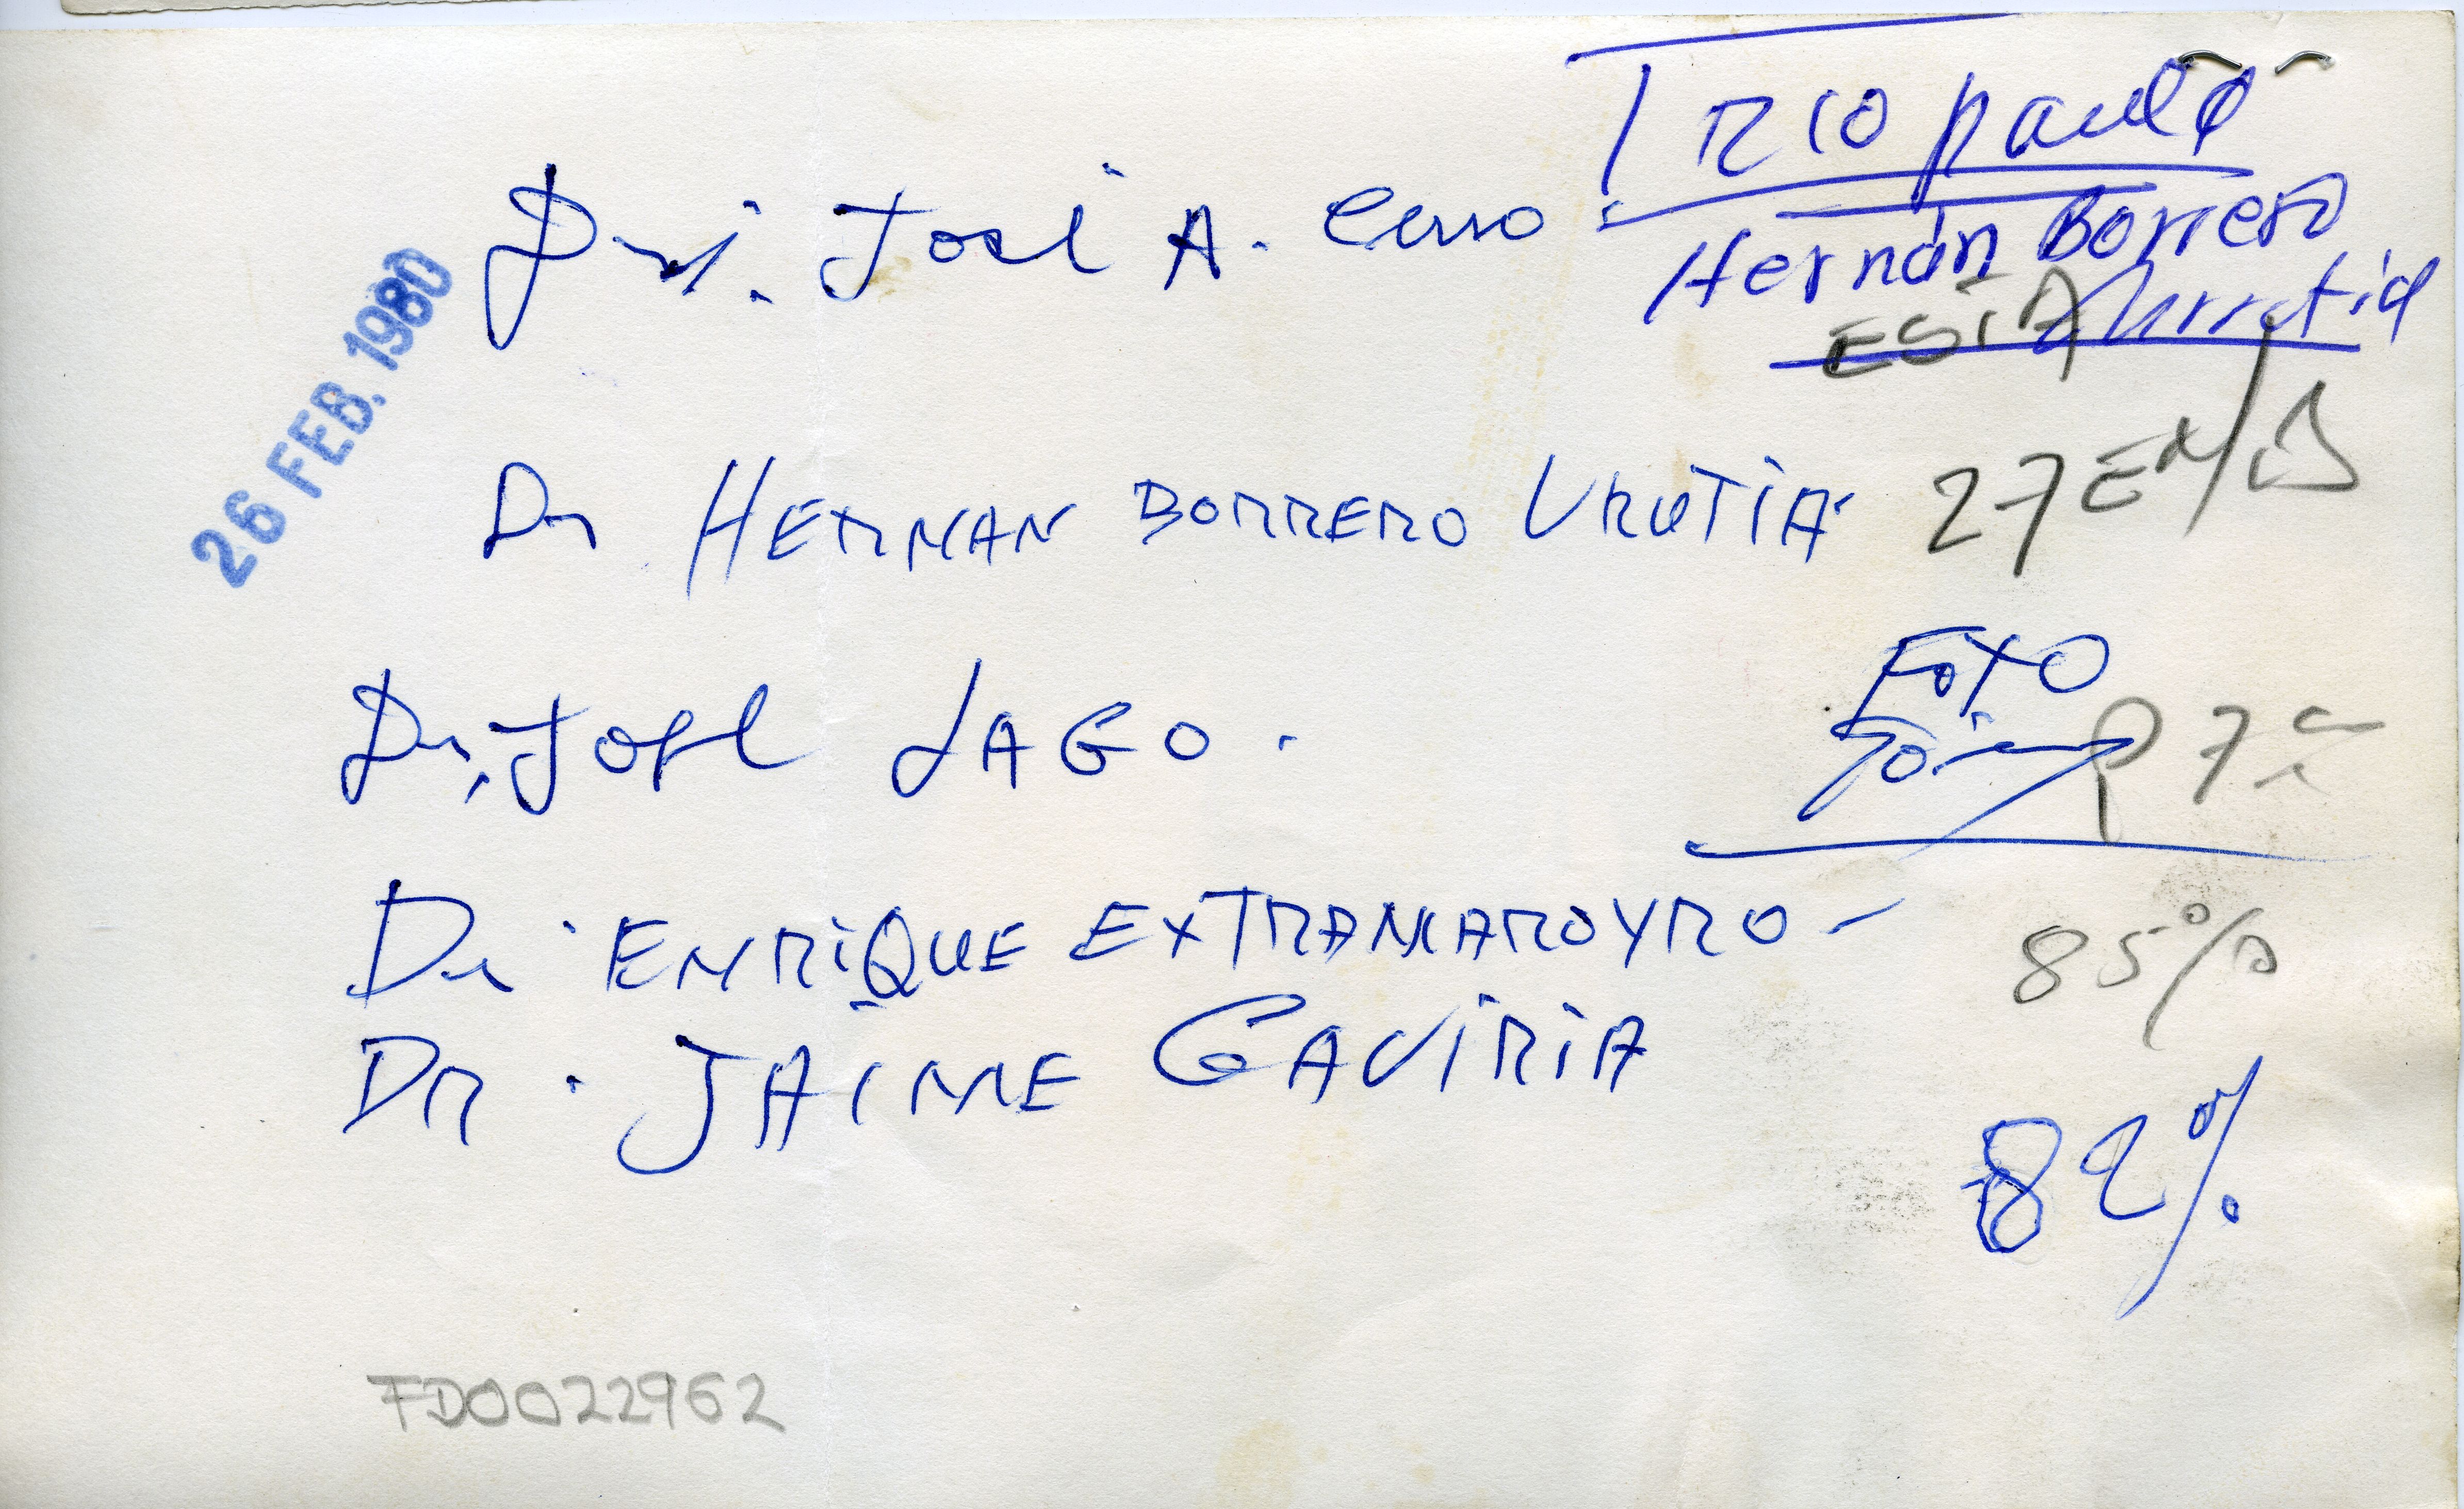 TRIO paulo
Dr. José A. Cerro.
Hernán Borrero
Urrutia
ESTA
26 FEB. 1980
Dr HERNAN BORRERO URUTIA
27 EM/
FOTO
Dr. José LAGO.
P 7
Dr. ENRIQUE EXTRAMAROYRO -
85%
DR. JAIME GAVIRIA
82%
FD0022962